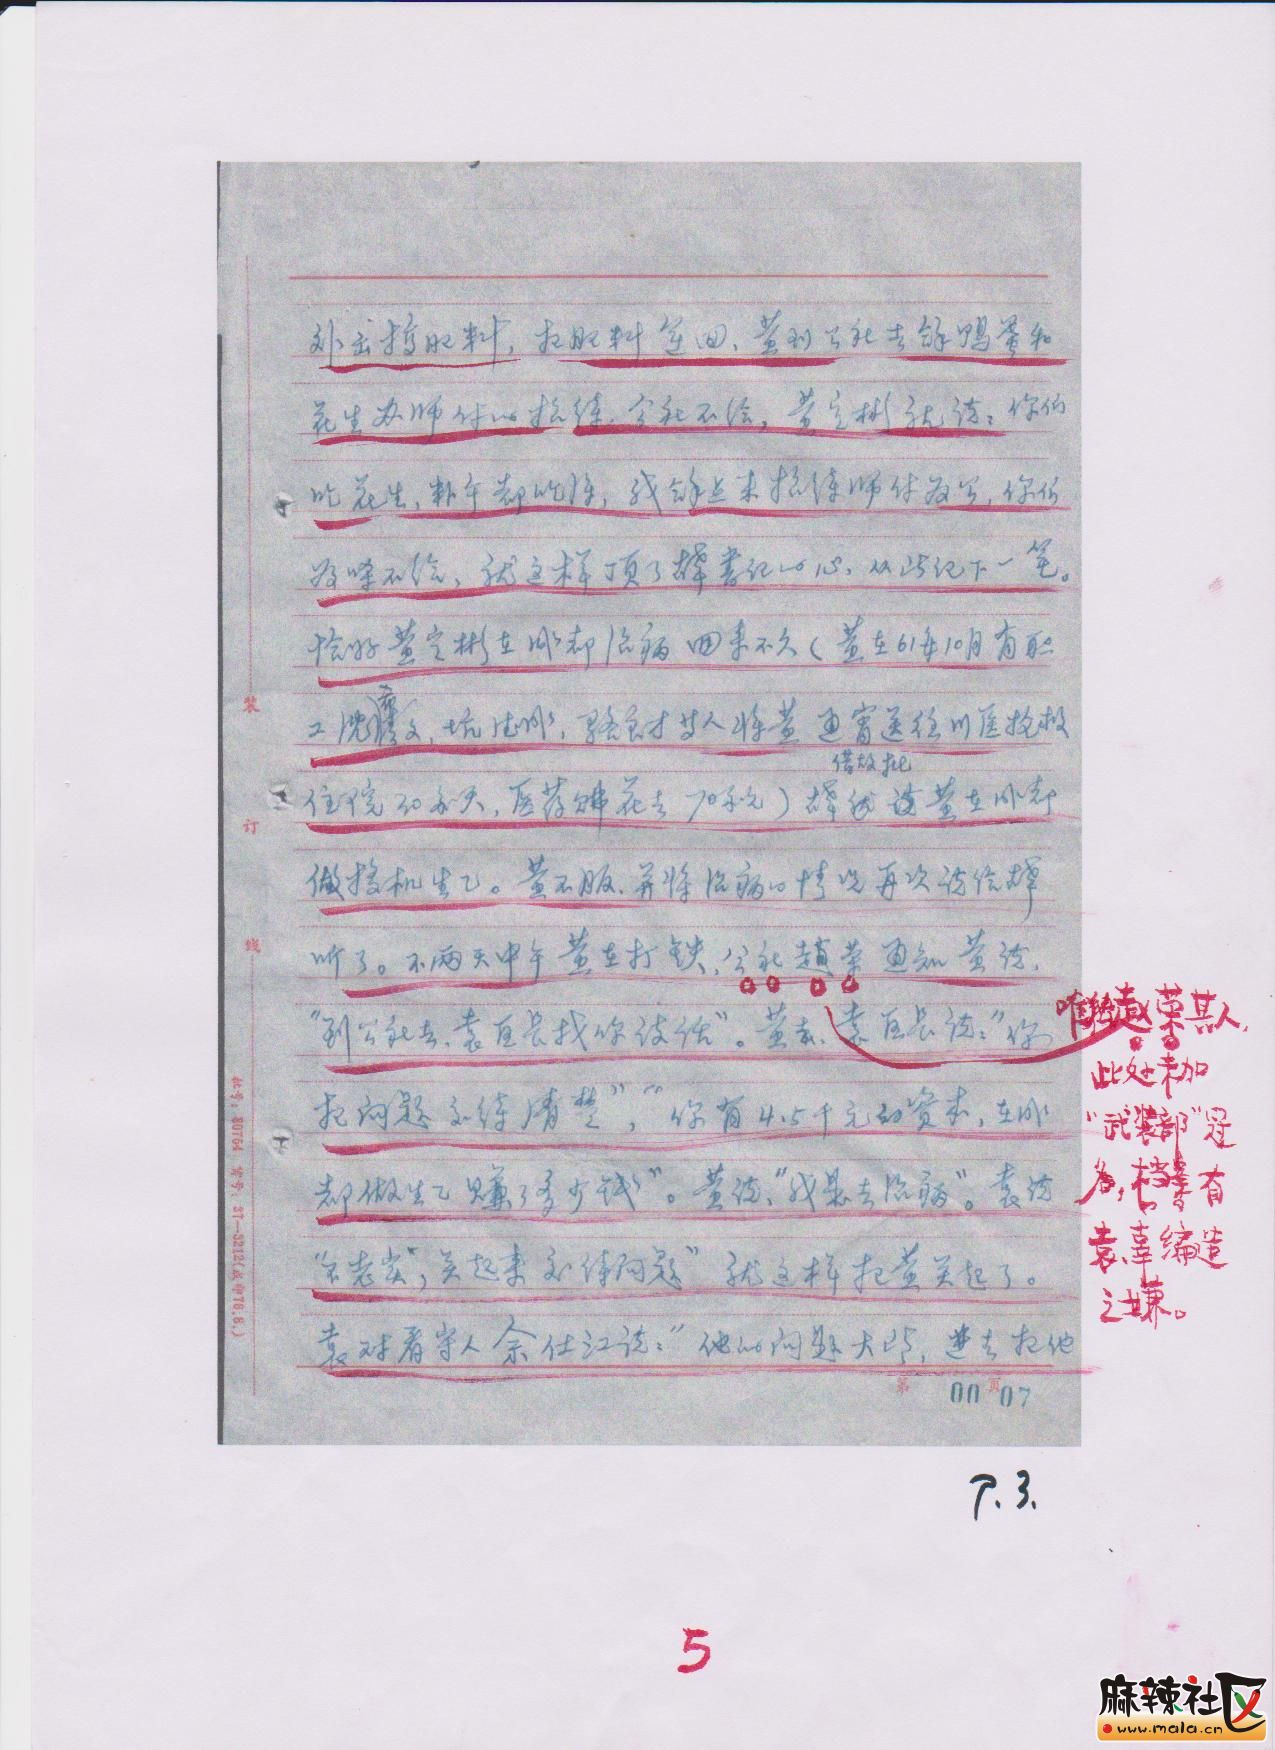 外出接肥料，把肥料运回、黄到公社去领鸭蛋和
花生办师付的招待，公社不给，黄定彬就说：你们
吃花生，
招待师付
你们
不给，就这样顶了
书记的心，从此记下一笔。
恰好黄定彬在成都治病回来不久（黄在61年10月有职
工
人将黄通宵送往川医抢救
借故批
住院20多天，医药
花去70多元）
说黄在成都
做投机生乙。黄不服、并将治病的情况再次说给
听了。不两天中午黄在打铁，公社赵荣通知黄说，
“到公社去、袁区长找你谈话”。黄去、袁区长说：“你
把问题交待清楚”，“你有4.5千元的资本，在成
都做生乙赚了多少钱”。黄说、“我是去治病”。袁说
“不老实”，关起来交待问题”就这样把黄关起了。
袁对看守人余仕江说：“他的问题大些，进去把他
装
订
线
批号：80764
37—3212（成革76.8.）
第 页
00 07
唯独赵荣其人，
此处未加
“武装部”冠
名，
有
袁、辜编造
之嫌。
P.3.
5
麻辣社区
www.mala.cn